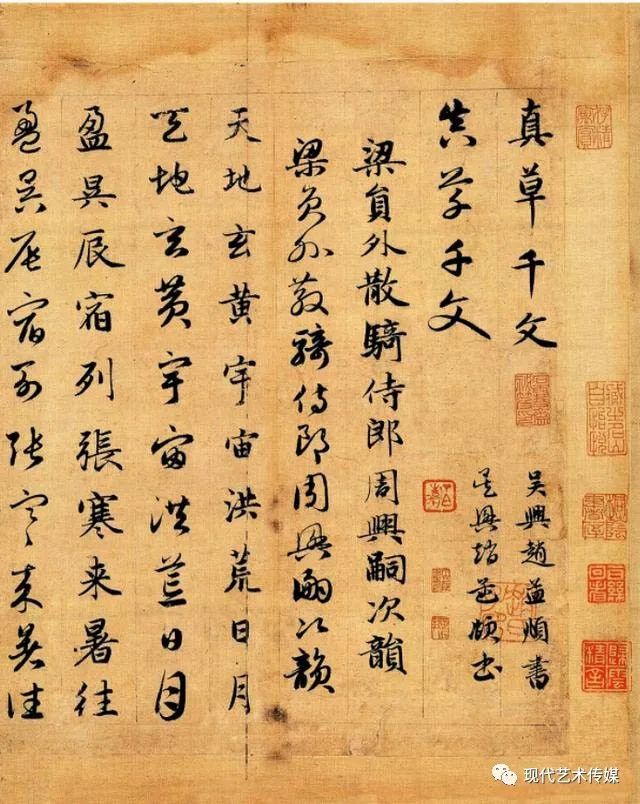 真草千文
吴興趙孟頫書
真草千文
吴興趙孟頫書
梁員外散騎侍郎周興嗣次韻
梁員外散騎侍郎周興嗣次韻
天地玄黄宇宙洪荒日月
天地玄黄宇宙洪荒日月
盈昃辰宿列張寒来暑往
盈昃辰宿列張寒来暑往
现代艺术传媒